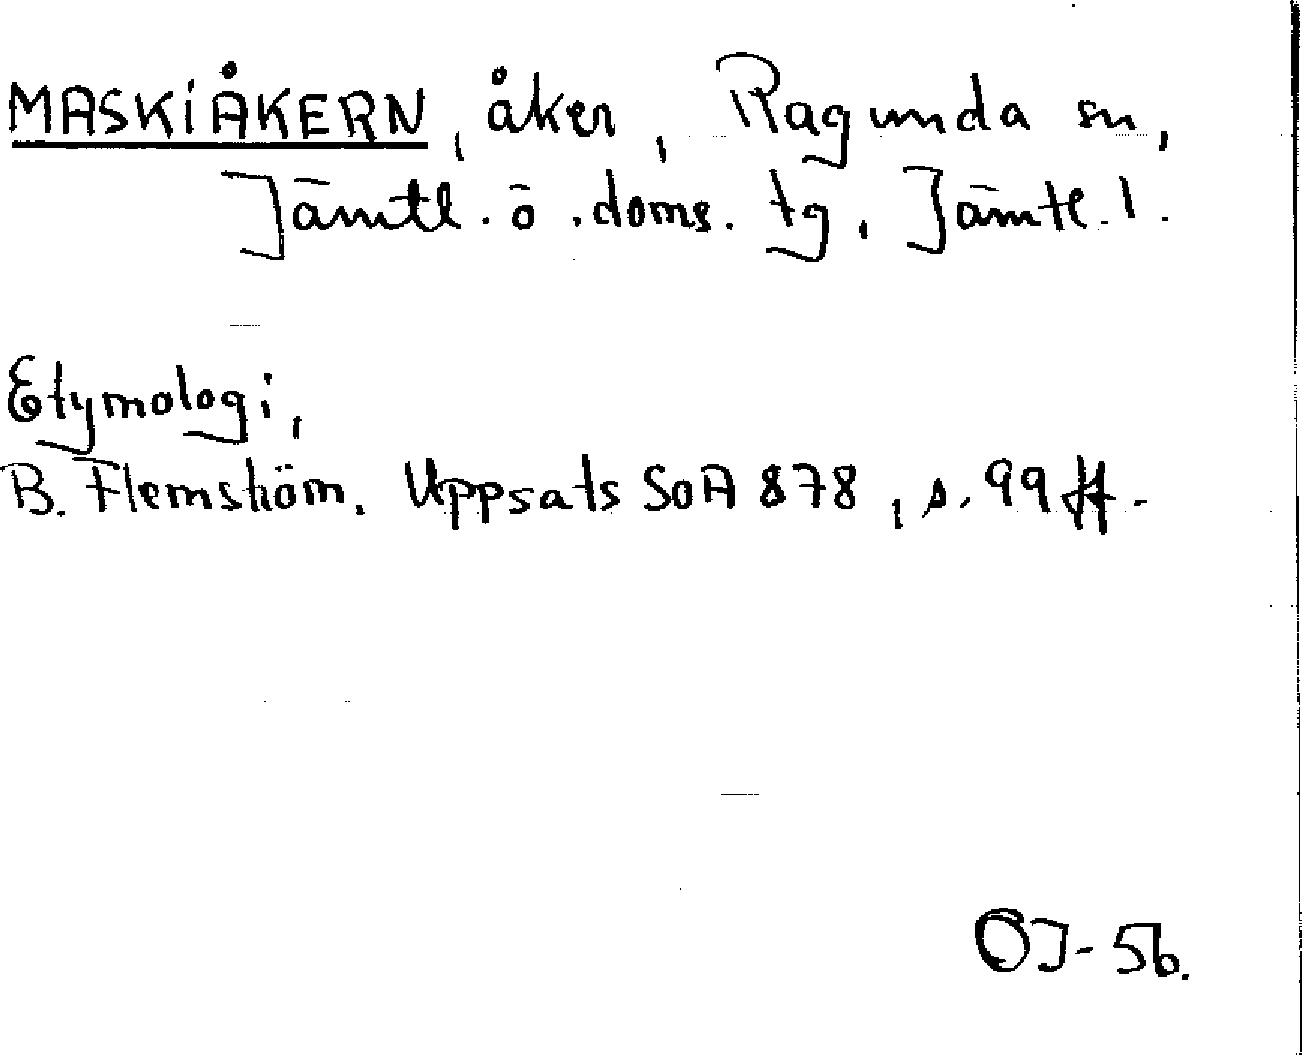 MASKIÅKERN, åker, Ragunda sn,
Jämtl. ö. doms. tg, Jämtl. l.
Etymologi,
B. Flemström. Uppsats SOA 878, s. 99 ff.
OJ-56.